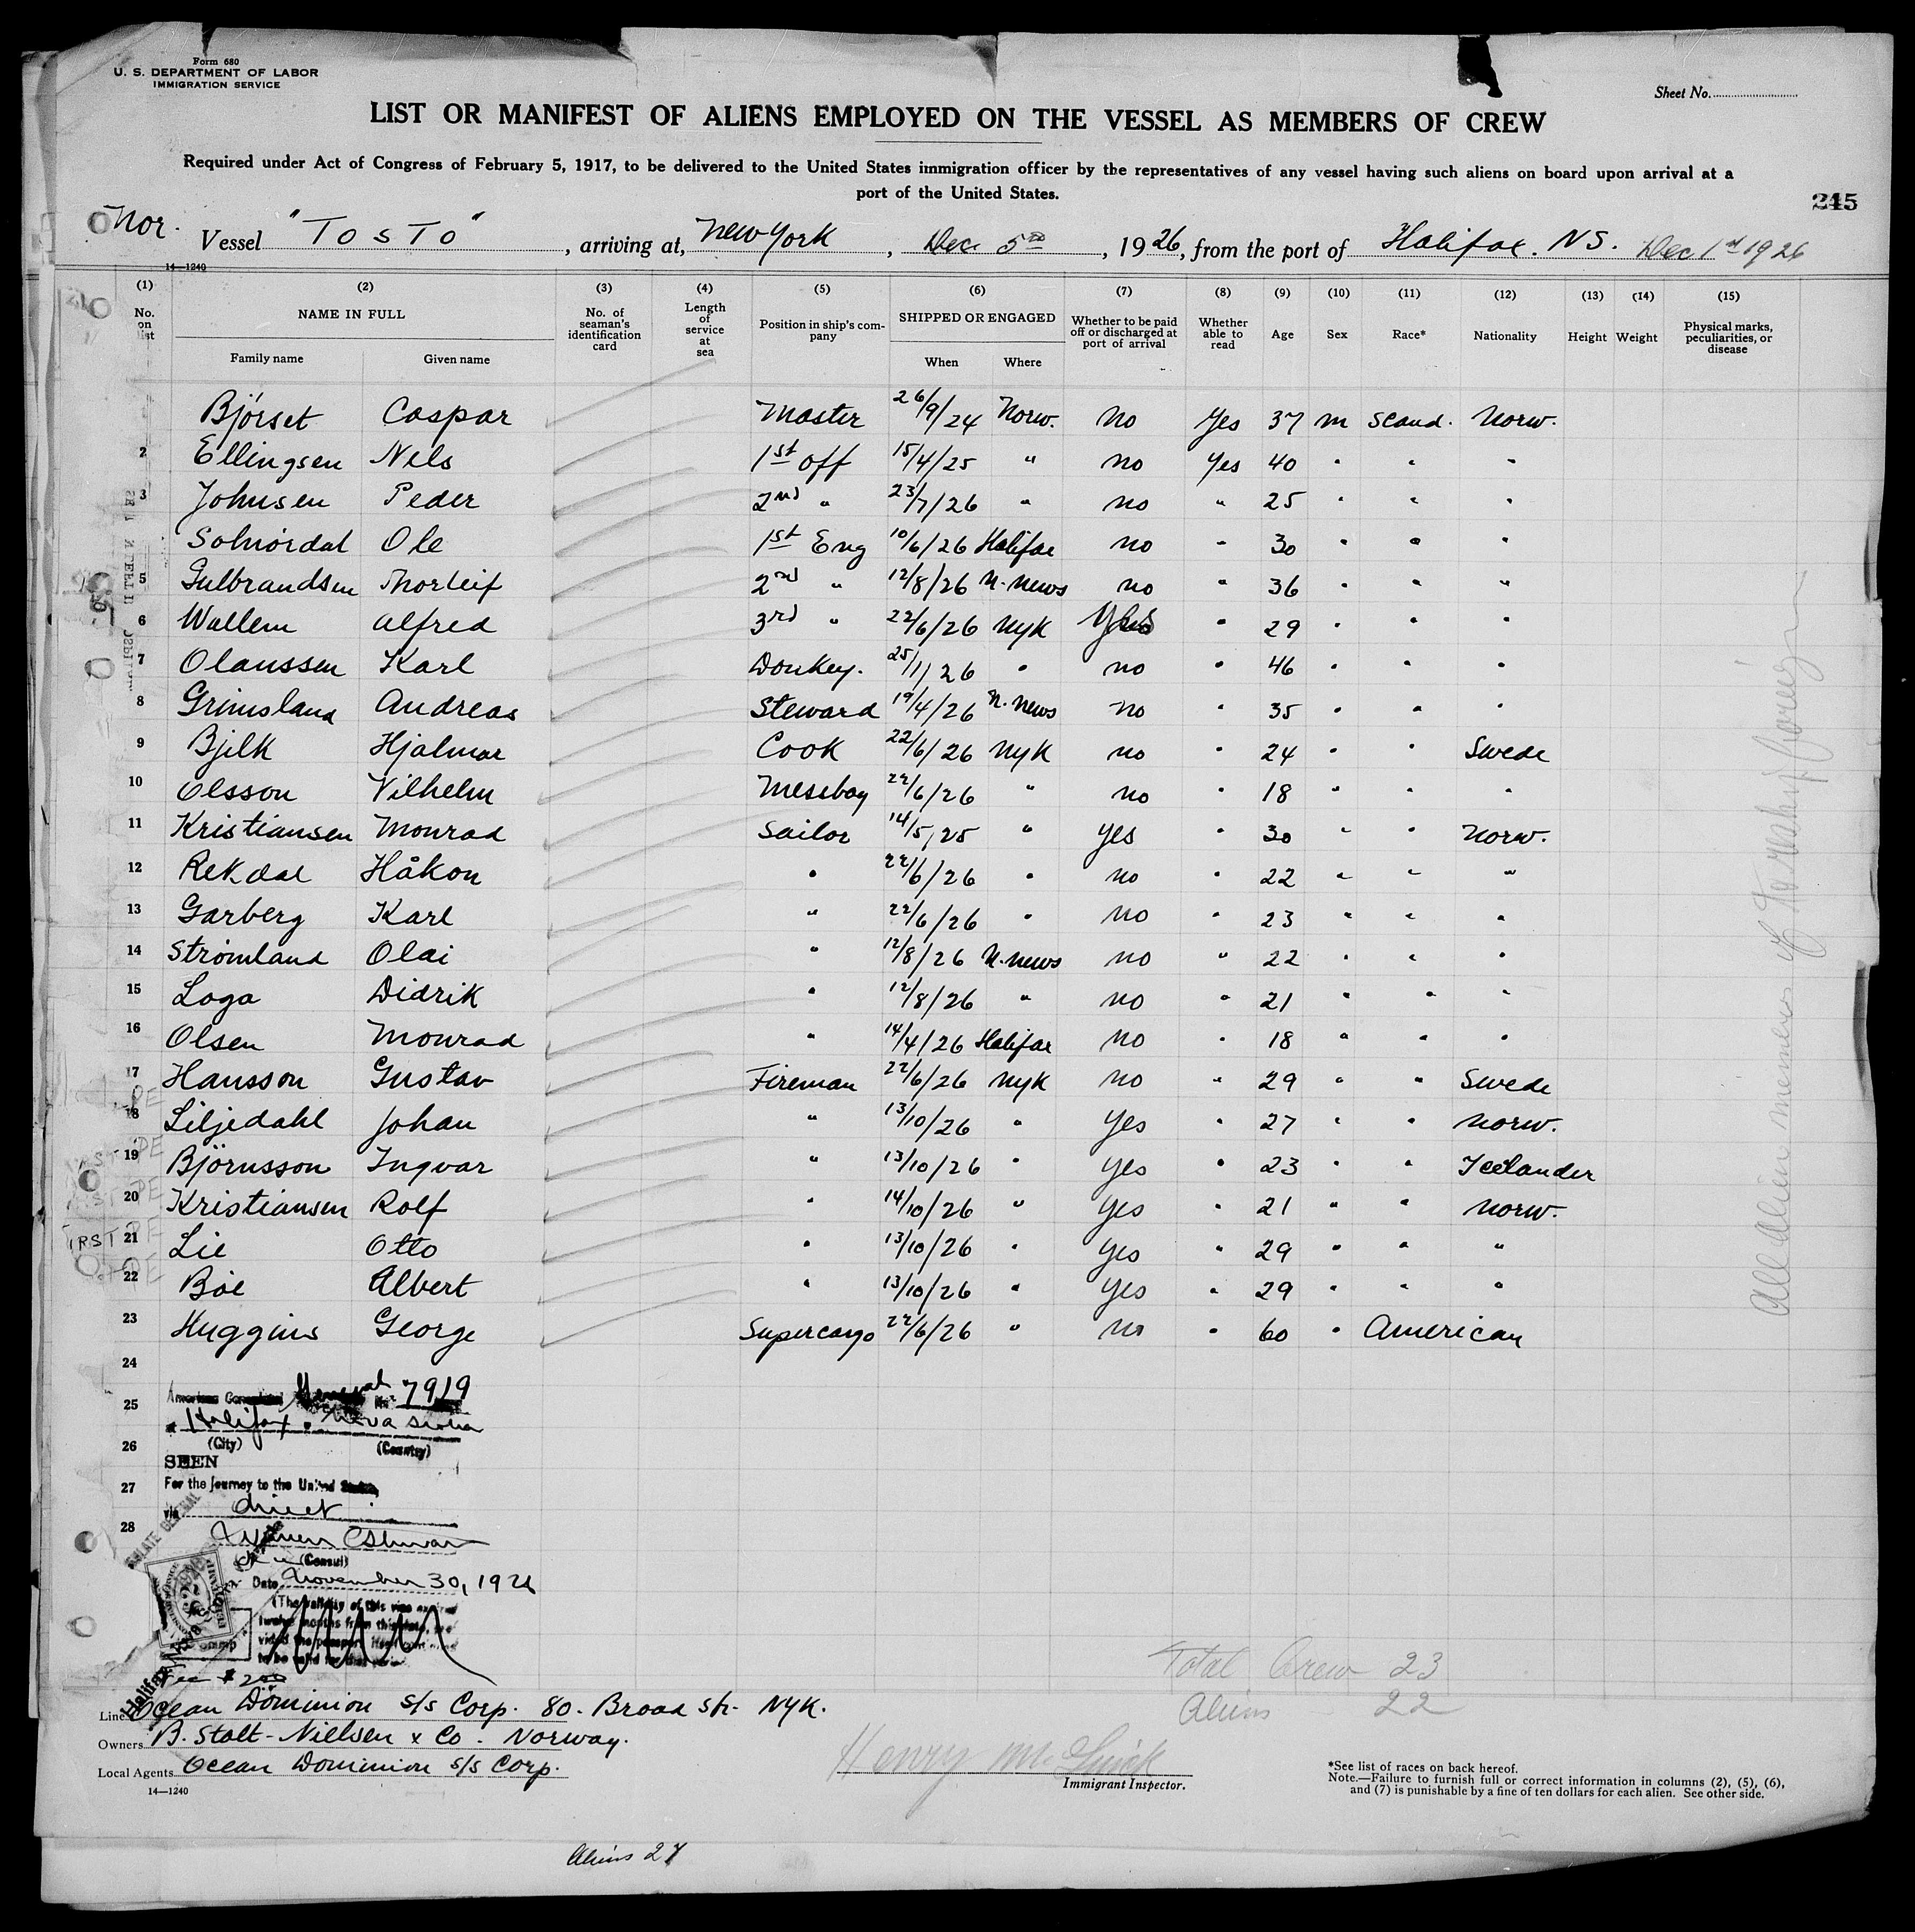 Form 680
U. S. DEPARTMENT OF LABOR
IMMIGRATION SERVICE
Sheet No.
LIST OR MANIFEST OF ALIENS EMPLOYED ON THE VESSEL AS MEMBERS OF CREW
Required under Act of Congress of February 5, 1917, to be delivered to the United States immigration officer by the representatives of any vessel having such aliens on board upon arrival at a
port of the United States.
245
Nor. Vessel "TOSTO", arriving at, New York, Dec 5th, 1926, from the port of Halifax. N.S. Dec 1st 1926
14—1240
(1) (2) (3) (4) (5) (6) (7) (8) (9) (10) (11) (12) (13) (14) (15)
No. on list NAME IN FULL No. of seaman's identification card Length of service at sea Position in ship's company SHIPPED OR ENGAGED Whether to be paid off or discharged at port of arrival Whether able to read Age Sex Race* Nationality Height Weight Physical marks, peculiarities, or disease
Family name Given name When Where
Björset Caspar Master 26/9/24 Norw. no Yes 37 m Scand. Norw.
2 Ellingsen Nels 1st off 15/4/25 " no Yes 40 " " "
3 Johnsen Peder 2nd " 23/7/26 " no " 25 " " "
Solnördal Ole 1st Eng 10/6/26 Halifax no " 30 " " "
5 Gulbrandsen Thorleif 2nd " 12/8/26 N. News no " 36 " " "
6 Wallem Alfred 3rd " 22/6/26 NYK Yes " 29 " " "
7 Olaussen Karl Donkey. 25/1/26 " no " 46 " " "
8 Grimsland Andreas Steward 19/4/26 N. News no " 35 " " "
9 Bjelk Hjalmar Cook 22/6/26 NYK no " 24 " " Swede
10 Olsson Vilhelm Messboy 22/6/26 " no " 18 " " "
11 Kristiansen Monrad Sailor 14/5/25 " Yes " 30 " " Norw.
12 Rekdal Håkon " 22/6/26 " no " 22 " " "
13 Garberg Karl " 22/6/26 " no " 23 " " "
14 Strömland Olai " 12/8/26 N. News no " 22 " " "
15 Loga Didrik " 12/8/26 " no " 21 " " "
16 Olsen Monrad " 14/4/26 Halifax no " 18 " " "
17 Hansson Gustav Fireman 22/6/26 NYK no " 29 " " Swede
18 Liljedahl Johan " 13/10/26 " Yes " 27 " " Norw.
19 Björnsson Ingvar " 13/10/26 " Yes " 23 " " Icelander
20 Kristiansen Rolf " 14/10/26 " Yes " 21 " " Norw.
21 Lie Otto " 13/10/26 " Yes " 29 " " "
22 Böe Albert " 13/10/26 " Yes " 29 " " "
23 Huggins George Supercargo 22/6/26 " no " 60 " American
24
25
26
27
28
American General No. 7919
Halifax, Nova Scotia
(City) (Country)
SEEN
For the journey to the United States
via direct
(Consul)
Date November 30, 1926
(The validity of this visa expires
twelve months from this date, pro-
vided the passport
to be valid for
Fee $2.00
All alien members of
Total Crew 23
Aliens 22
Line Ocean Dominion S/S Corp. 80. Broad Str. NYK.
Owners B. Stolt-Nielsen & Co. Norway.
Local Agents Ocean Dominion S/S Corp.
14—1240
Henry
Immigrant Inspector.
*See list of races on back hereof.
Note.—Failure to furnish full or correct information in columns (2), (5), (6),
and (7) is punishable by a fine of ten dollars for each alien. See other side.
Aliens 27